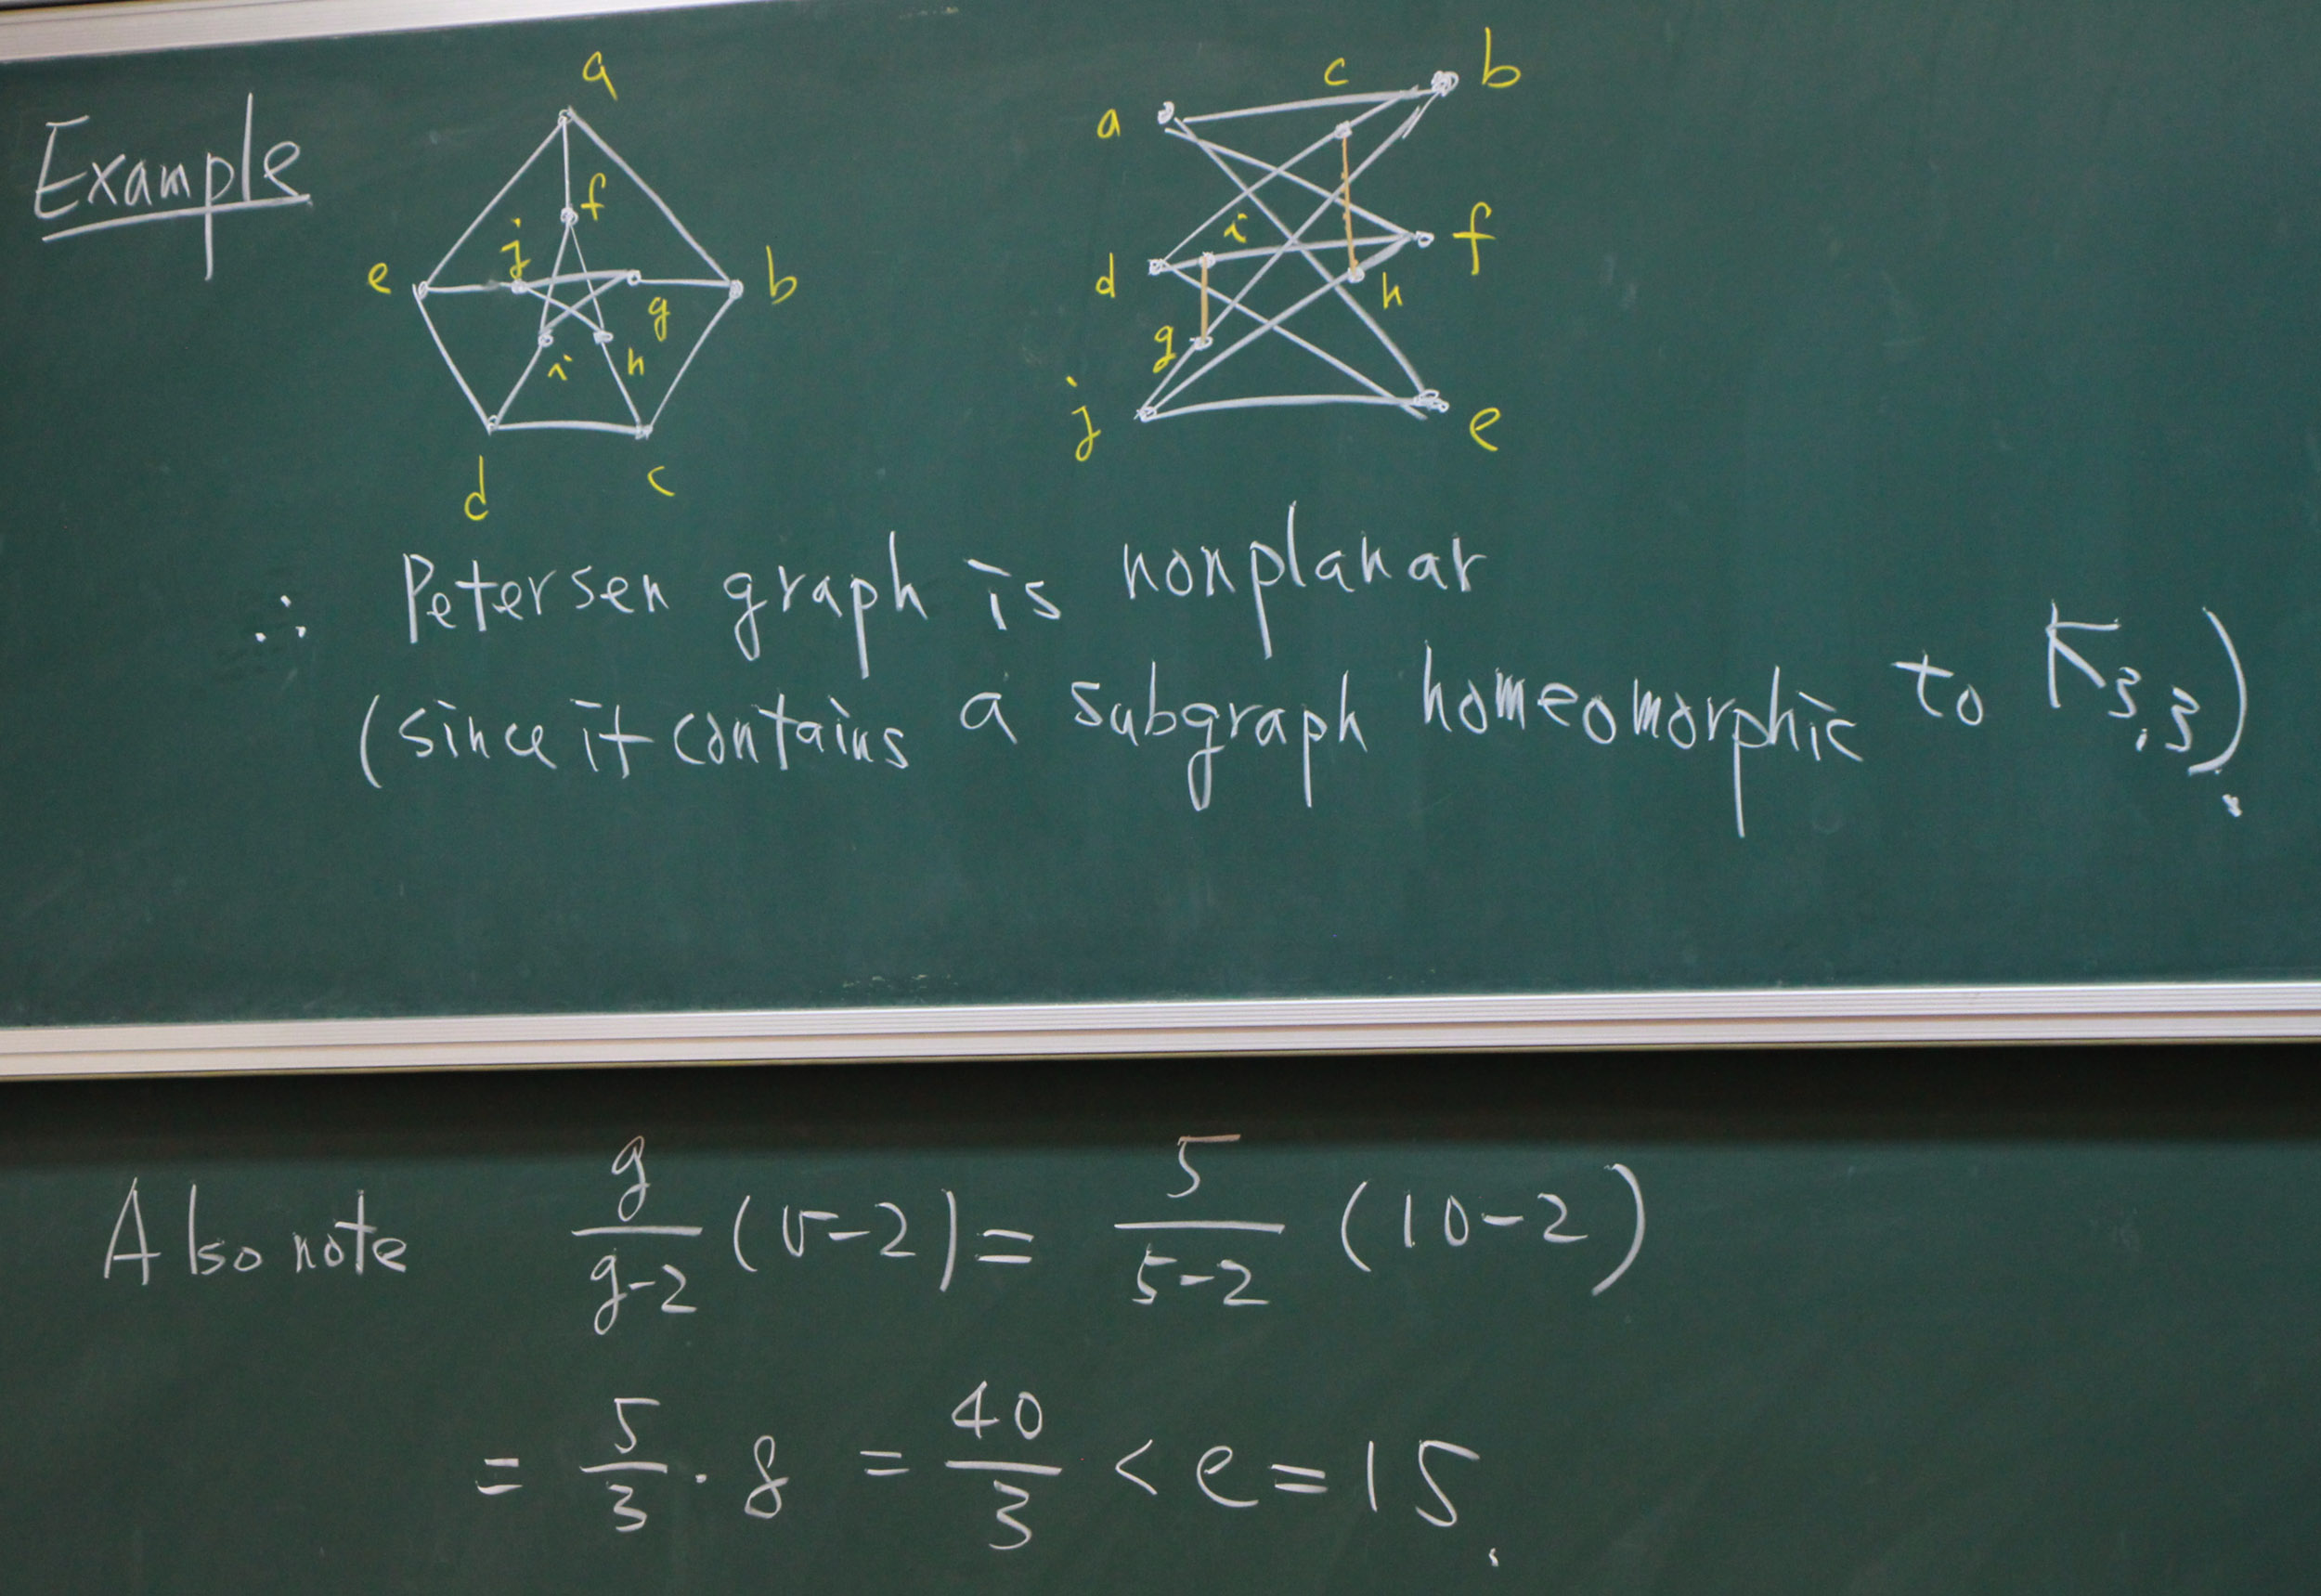 Example
a
f
j
e
b
g
i
h
d
c
c
b
a
i
f
d
h
g
j
e
∴ Petersen graph is nonplanar
(since it contains a subgraph homeomorphic to K3,3).
Also note g/(g-2) (v-2) = 5/(5-2) (10-2)
= 5/3 · 8 = 40/3 < e = 15.